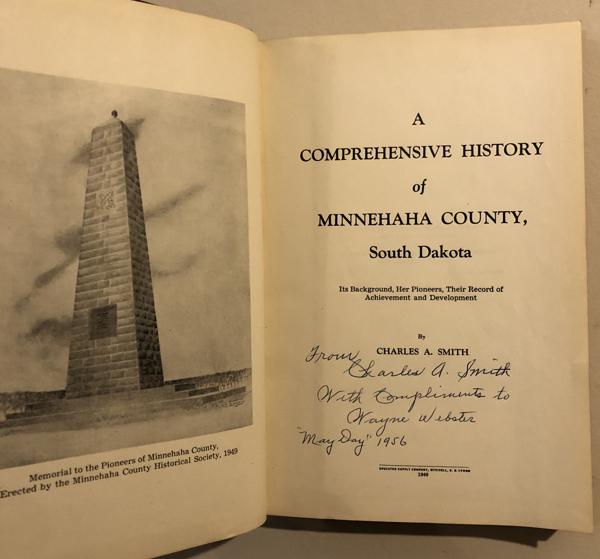 Memorial to the Pioneers of Minnehaha County,
Erected by the Minnehaha County Historical Society, 1949
A
COMPREHENSIVE HISTORY
of
MINNEHAHA COUNTY,
South Dakota
Its Background, Her Pioneers, Their Record of
Achievement and Development
By
CHARLES A. SMITH
From
Charles A. Smith
With Compliments to
Wayne Webster
"May Day" 1956
EDUCATOR SUPPLY COMPANY, MITCHELL, S. D.
1949